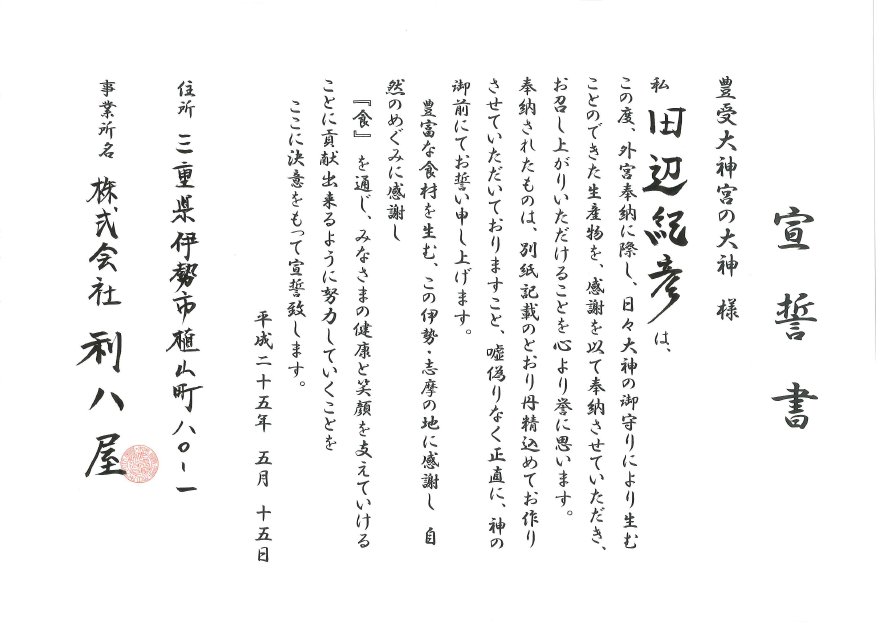 宣誓書
豊受大神宮の大神 様
私 田辺紀彦は、
この度、外宮奉納に際し、日々大神の御守りにより生む
ことのできた生産物を、感謝を以て奉納させていただき、
お召し上がりいただけることを心より誉に思います。
奉納されたものは、別紙記載のとおり丹精込めてお作り
させていただいておりますこと、嘘偽りなく正直に、神の
御前にてお誓い申し上げます。
豊富な食材を生む、この伊勢・志摩の地に感謝し 自
然のめぐみに感謝し
『食』を通じ、みなさまの健康と笑顔を支えていける
ことに貢献出来るように努力していくことを
ここに決意をもって宣誓致します。
平成二十五年 五月 十五日
住所 三重県伊勢市植山町八〇-一
事業所名 株式会社 利八屋